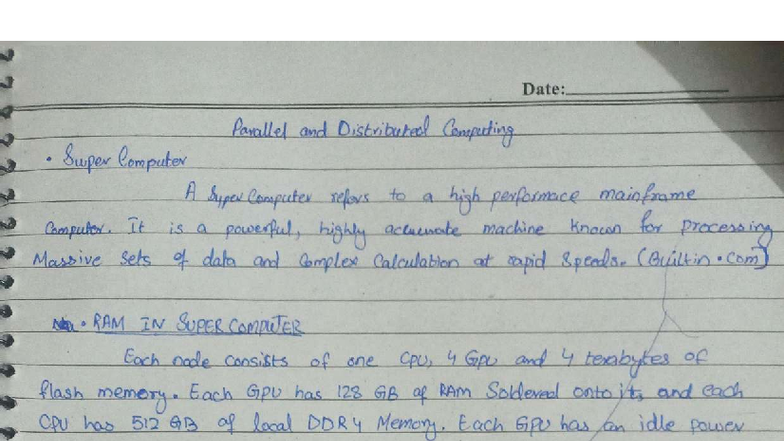 Date:
Parallel and Distributed Computing
• Super Computer
A Super Computer refers to a high performace mainframe
Computer. It is a powerful, highly accuerate machine known for processing
Massive sets of data and Complex Calculation at rapid Speeds. (Builtin.com)
• RAM IN SUPER COMPUTER
Each node consists of one CPU, 4 GPU and 4 terabytes of
flash memory. Each GPU has 128 GB of RAM Soldered onto it, and each
CPU has 512 GB of local DDR4 Memory. Each GPU has an idle power